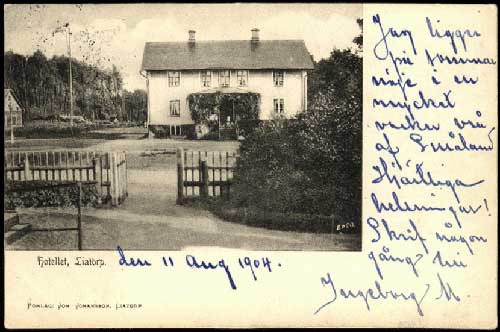 Jag ligger
på sommar
nöje i en
mycket
vacker vrå
af Småland
Hjärtliga
helsningar!
Skrif någon
gång till
Ingeborg M.
Hotellet, Liatorp.
den 11 Aug 1904.
FÖRLAG: JOH. JOHANSSON, LIATORP.